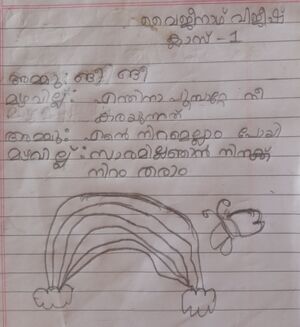 വൈജനാഥ് വിജീഷ്
ക്ലാസ് - 1
അമ്മു: ങീ ങീ
മഴവില്ല്: എന്തിനാ പൂമ്പാറ്റേ നീ
കരയുന്നത്
അമ്മു: എൻെ നിറമെല്ലാം പോയി
മഴവില്ല്: സാരമില്ലഞാൻ നിനക്ക്
നിറം തരാം